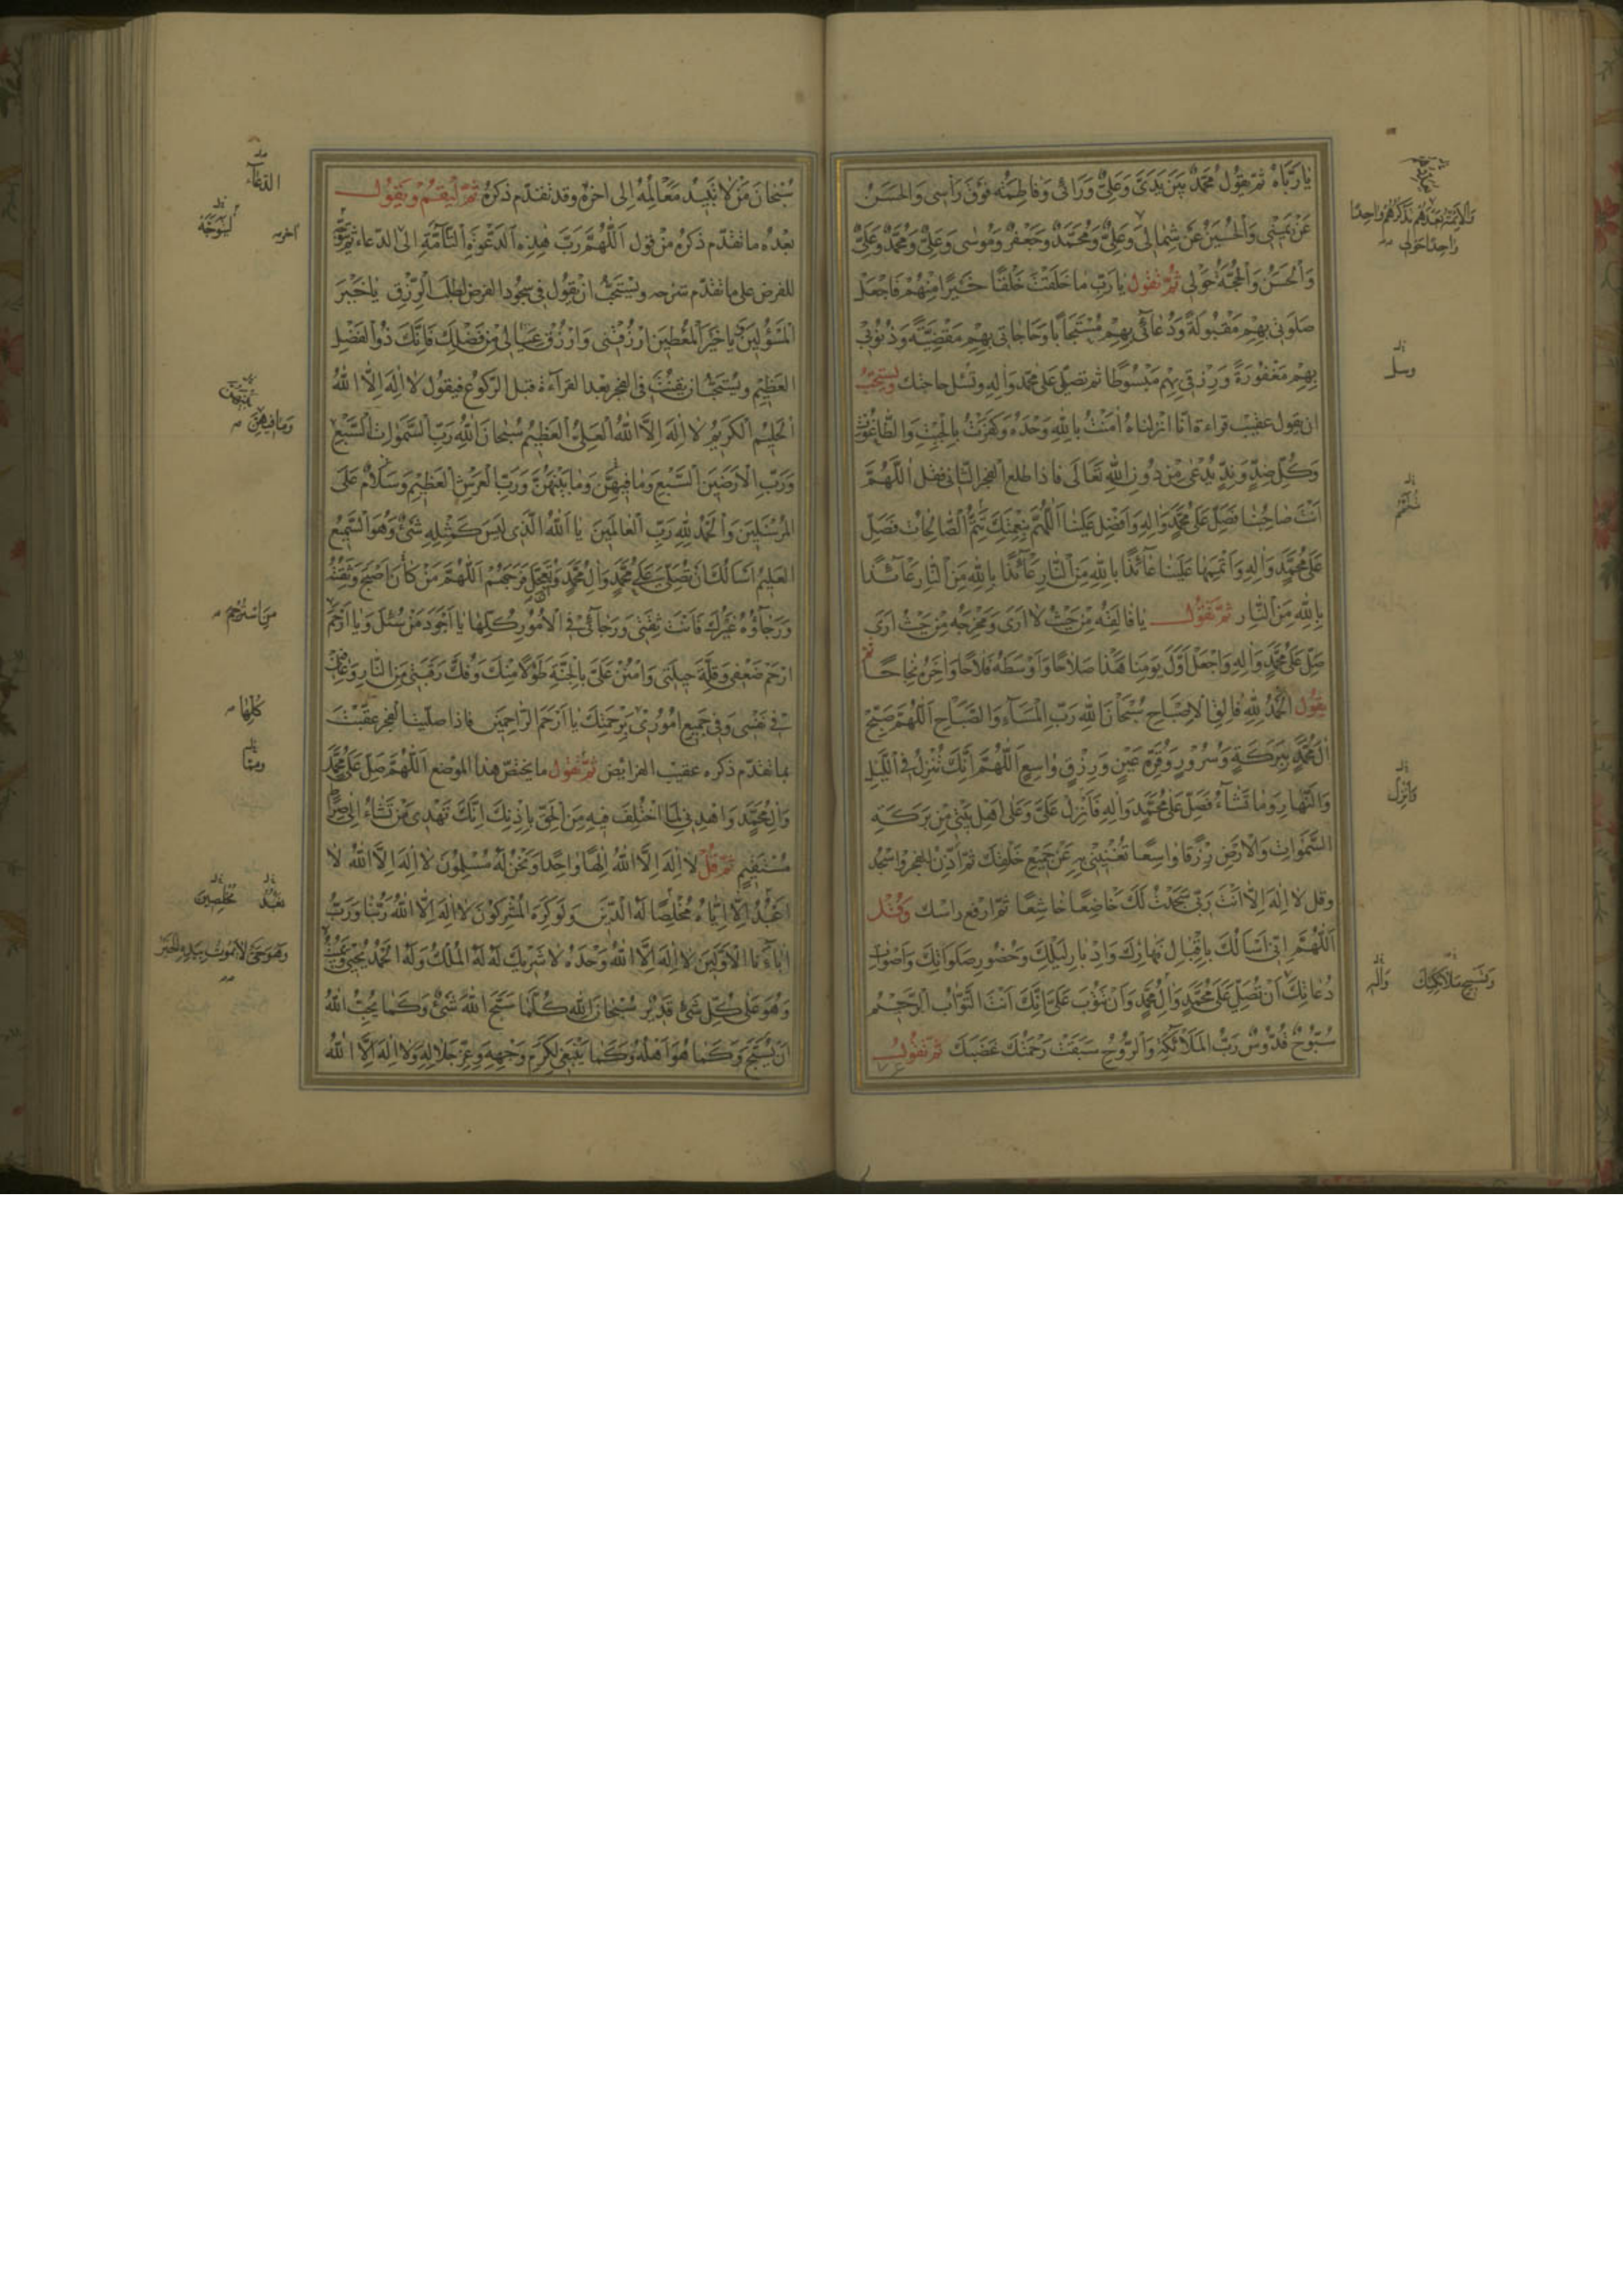 يا رَبَّاهُ ثمّ يقول مُحَمَّدٌ بَيْنَ يَدَيَّ وَعَلِيٌّ وَرَائى وَفاطِمَةُ فَوْقَ رَأسى وَالْحَسَنُ
عَنْ يَمينى وَالْحُسَيْنُ عَنْ شِمالى وَعَلِيٌّ وَمُحَمَّدٌ وَجَعْفَرٌ وَمُوسى وَعَلِيٌّ وَمُحَمَّدٌ وَعَلِيٌّ
وَالْحَسَنُ وَالْحُجَّةُ حَوْلى ثمّ تقول يا رَبِّ ما خَلَقْتَ خَلْقًا خَيْرًا مِنْهُمْ فَاجْعَلْ
صَلَوتى بِهِمْ مَقْبُولَةً وَدُعآئى بِهِمْ مُسْتَجابًا وَحاجاتى بِهِمْ مَقْضِيَّةً وَذُنُوبى
بِهِمْ مَغْفُورَةً وَرِزْقى بِهِمْ مَبْسُوطًا ثم تصلّى على محمّد واله وتسل حاجتك ويستحبّ
ان يقول عقيب قراءة انّا انزلناه اٰمَنْتُ بِاللهِ وَحْدَهُ وَكَفَرْتُ بِالْجِبْتِ وَالطّاغُوتِ
وَكُلِّ ضِدٍّ وَنِدٍّ يُدْعى مِنْ دُونِ اللهِ تَعَالَى فاذا طلع الفجر الثّانى فقل اَللّهُمَّ
اَنْتَ صاحِبُنا فَصَلِّ عَلى مُحَمَّدٍ وَالِهِ وَاَفْضِلْ عَلَيْنا اَللّهُمَّ بِنِعْمَتِكَ تَتِمُّ الصّالِحاتُ فَصَلِّ
عَلى مُحَمَّدٍ وَالِهِ وَاَتْمِمْها عَلَيْنا عآئذًا بِاللهِ مِنَ النّارِ عآئذًا بِاللهِ مِنَ النّارِ عآئذًا
بِاللهِ مِنَ النّارِ ثمّ تقول يا فالِقَهُ مِنْ حَيْثُ لا اَرى وَمُخْرِجَهُ مِنْ حَيْثُ اَرى
صَلِّ عَلى مُحَمَّدٍ وَالِهِ وَاجْعَلْ اَوَّلَ يَوْمِنا هذا صَلاحًا وَاَوْسَطَهُ فَلاحًا وَاٰخِرَهُ نَجاحًا ثم
يقول اَلْحَمْدُ لِلهِ فالِقِ الْاِصْباحِ سُبْحانَ اللهِ رَبِّ الْمَسآءِ وَالصَّباحِ اَللّهُمَّ صَبِّحْ
الَ مُحَمَّدٍ بِبَرَكَةٍ وَسُرُورٍ وَقُرَّةِ عَيْنٍ وَرِزْقٍ واسِعٍ اَللّهُمَّ اِنَّكَ تُنْزِلُ فِى اللَّيْلِ
وَالنَّهارِ وَما تَشآءُ فَصَلِّ عَلى مُحَمَّدٍ وَالِهِ فَاَنْزِلْ عَلَيَّ وَعَلى اَهْلِ بَيْتى مِنْ بَرَكَةِ
السَّمواتِ وَالْاَرْضِ رِزْقًا واسِعًا تُغْنينى بِهِ عَنْ جَميعِ خَلْقِكَ ثمّ اذّن للفجر واسجد
وقل لا اِلهَ اِلّا اَنْتَ رَبّى سَجَدْتُ لَكَ خاضِعًا خاشِعًا ثمّ ارفع راسك وقل
اَللّهُمَّ اِنّى اَسْاَلُكَ بِاِقْبالِ نَهارِكَ وَاِدْبارِ لَيْلِكَ وَحُضُورِ صَلَواتِكَ وَاَصْواتِ
دُعاتِكَ اَنْ تُصَلِّيَ عَلى مُحَمَّدٍ وَالِ مُحَمَّدٍ وَاَنْ تَتُوبَ عَلَيَّ اِنَّكَ اَنْتَ التَّوّابُ الرَّحيمُ
سُبُّوحٌ قُدُّوسٌ رَبُّ الْمَلآئِكَةِ وَالرُّوحِ سَبَقَتْ رَحْمَتُكَ غَضَبَكَ ثمّ تقول
وَالْاَئِمَّةُ بَعْدَهُمْ تذكرهم واحِدًا
واحِدًا حَولى
وسل
وَاَنْزِل
وَتَسْبيحِ مَلآئِكَتِكَ وَالِهِ
سُبْحانَ مَنْ لا تَبيدُ مَعالِمُهُ الى اخره وقد تقدّم ذكره ثمّ ليقم ويقول
بعده ما تقدّم ذكره من قول اَللّهُمَّ رَبَّ هٰذِهِ الدَّعْوَةِ التّآمَّةِ الى الدّعاء ثم يتوجّه
للفرض على ما تقدّم شرحه ويستحبّ ان يقول فى سجود الفرض لطلب الرّزق يا خَيْرَ
الْمَسْؤُلينَ وَيا خَيْرَ الْمُعْطينَ ارْزُقْنى وَارْزُقْ عِيالى مِنْ فَضْلِكَ فَاِنَّكَ ذُوالْفَضْلِ
العَظيمِ ويستحبّ ان يقنت فى الفجر بعد القرآءة قبل الرّكوع فيقول لا اِلهَ اِلّا اللهُ
الْحَليمُ الْكَريمُ لا اِلهَ اِلَّا اللهُ الْعَلِيُّ الْعَظيمُ سُبْحانَ اللهِ رَبِّ السَّمواتِ السَّبْعِ
وَرَبِّ الْاَرَضينَ السَّبْعِ وَما فيهِنَّ وَما بَيْنَهُنَّ وَرَبِّ الْعَرْشِ الْعَظيمِ وَسَلامٌ عَلَى
الْمُرْسَلينَ وَالْحَمْدُ لِلهِ رَبِّ الْعالَمينَ يا اَللهُ الَّذى لَيْسَ كَمِثْلِهِ شَيْءٌ وَهُوَ السَّميعُ
العَليمُ اَسْاَلُكَ اَنْ تُصَلِّيَ عَلى مُحَمَّدٍ وَالِ مُحَمَّدٍ وَتُعَجِّلَ فَرَجَهُمْ اَللّهُمَّ مَنْ كانَ اَصْبَحَ وَثِقَتُهُ
وَرَجآؤُهُ غَيْرُكَ فَاَنْتَ ثِقَتى وَرَجآئى فِى الْاُمُورِ كُلِّها يا اَجْوَدَ مَنْ سُئِلَ وَيا اَرْحَمَ
ارْحَمْ ضَعْفى وَقِلَّةَ حيلَتى وَامْنُنْ عَلَيَّ بِالْجَنَّةِ طَوْلًا مِنْكَ وَفُكَّ رَقَبَتى مِنَ النّارِ وَعافِنى
فى نَفْسى وَفى جَميعِ اُمُورى بِرَحْمَتِكَ يا اَرْحَمَ الرّاحِمينَ فاذا صلّيت الفجر عقّبت
بما تقدّم ذكره عقيب الفرائض ثمّ تقول ما يختصّ هذا الموضع اَللّهُمَّ صَلِّ عَلى مُحَمَّدٍ
وَالِ مُحَمَّدٍ وَاهْدِنى لِمَا اخْتُلِفَ فيهِ مِنَ الْحَقِّ بِاِذْنِكَ اِنَّكَ تَهْدى مَنْ تَشاءُ اِلى صِراطٍ
مُسْتَقيمٍ ثمّ قل لا اِلهَ اِلَّا اللهُ اِلهًا واحِدًا وَنَحْنُ لَهُ مُسْلِمُونَ لا اِلهَ اِلَّا اللهُ لا
اَعْبُدُ اِلّا اِيّاهُ مُخْلِصًا لَهُ الدّينَ وَلَوْ كَرِهَ الْمُشْرِكُونَ لا اِلهَ اِلَّا اللهُ رَبُّنا وَرَبُّ
ابآئِنَا الْاَوَّلينَ لا اِلهَ اِلَّا اللهُ وَحْدَهُ لا شَريكَ لَهُ لَهُ الْمُلْكُ وَلَهُ الْحَمْدُ يُحْيى وَيُميتُ
وَهُوَ عَلى كُلِّ شَيْءٍ قَديرٌ سُبْحانَ اللهِ كُلَّما سَبَّحَ اللهَ شَيْءٌ وَكَما يُحِبُّ اللهُ
اَنْ يُسَبَّحَ وَكَما هُوَ اَهْلُهُ وَكَما يَنْبَغى لِكَرَمِ وَجْهِهِ وَعِزِّ جَلالِهِ وَلا اِلهَ اِلَّا اللهُ
الدّعآء
ليوجّه
اخره
وَما فيهِنَّ
مَنِ اسْتُرْحِمَ
كُلِّها
نَعْبُدُ مُخْلِصينَ
وَهُوَ حَيٌّ لا يَمُوتُ بِيَدِهِ الْخَيْرُ